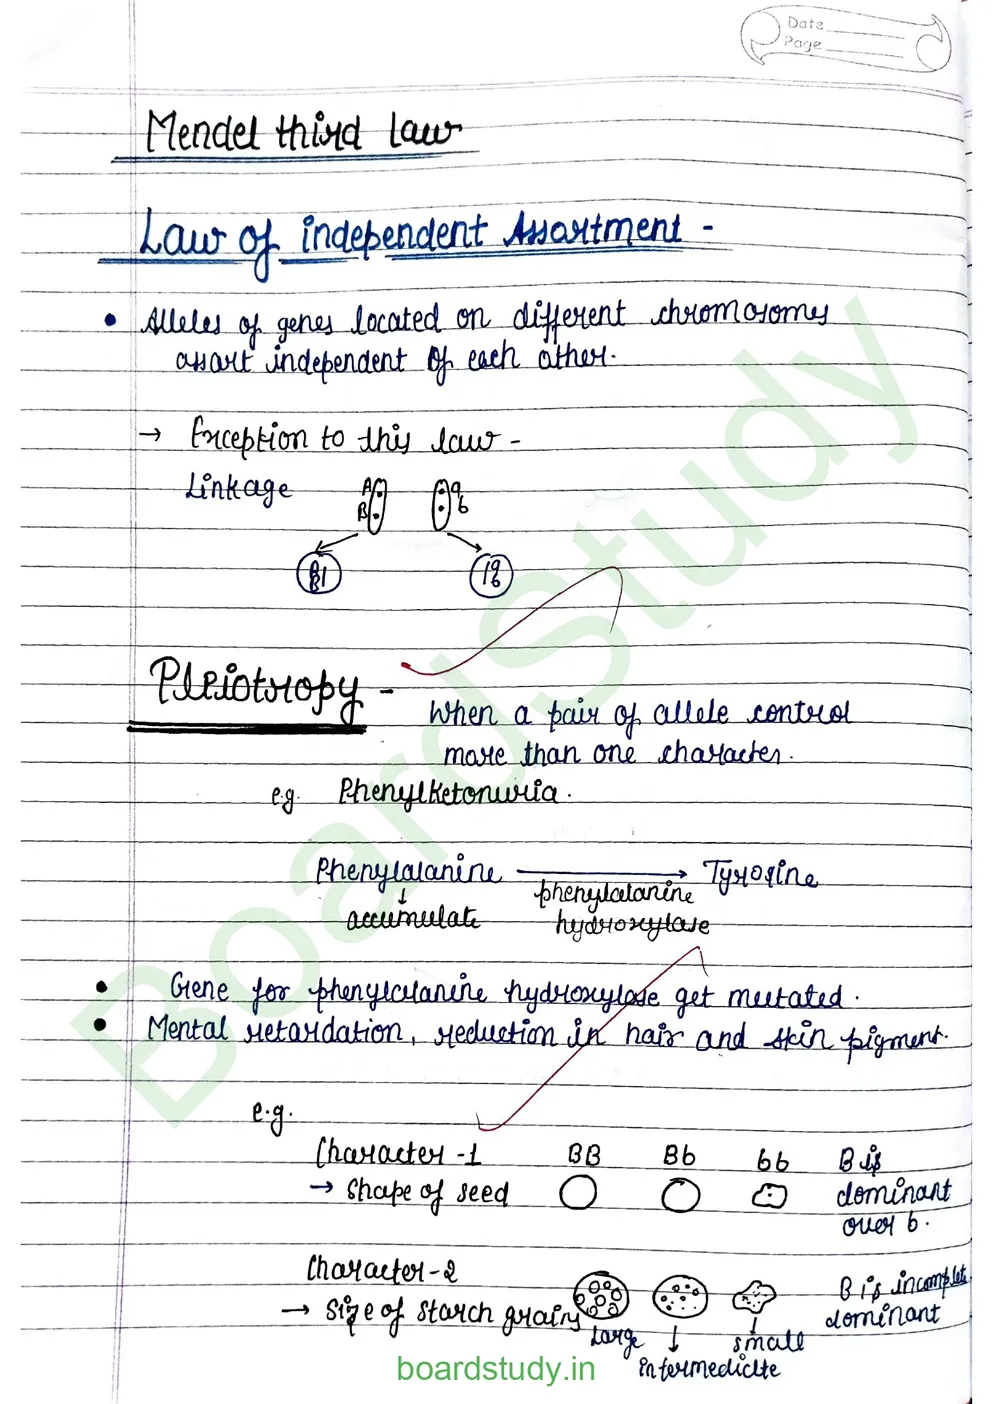 Date
Page
Mendel third law
Law of independent Assortment -
• Alleles of genes located on different chromosomes
assort independent of each other.
→ Exception to this law -
Linkage A a
B b
A a
B b
Pleiotropy -
When a pair of allele control
more than one character.
e.g. Phenylketonuria.
Phenylalanine → Tyrosine
↓ phenylalanine
accumulate hydroxylase
• Gene for phenylalanine hydroxylase get mutated.
• Mental retardation, reduction in hair and skin pigment.
e.g.
Character -1 BB Bb bb B is
→ Shape of seed dominant
over b.
Character -2 B is incomplete
→ Size of starch grains dominant
Large ↓ small
intermediate
boardstudy.in
BoardStudy